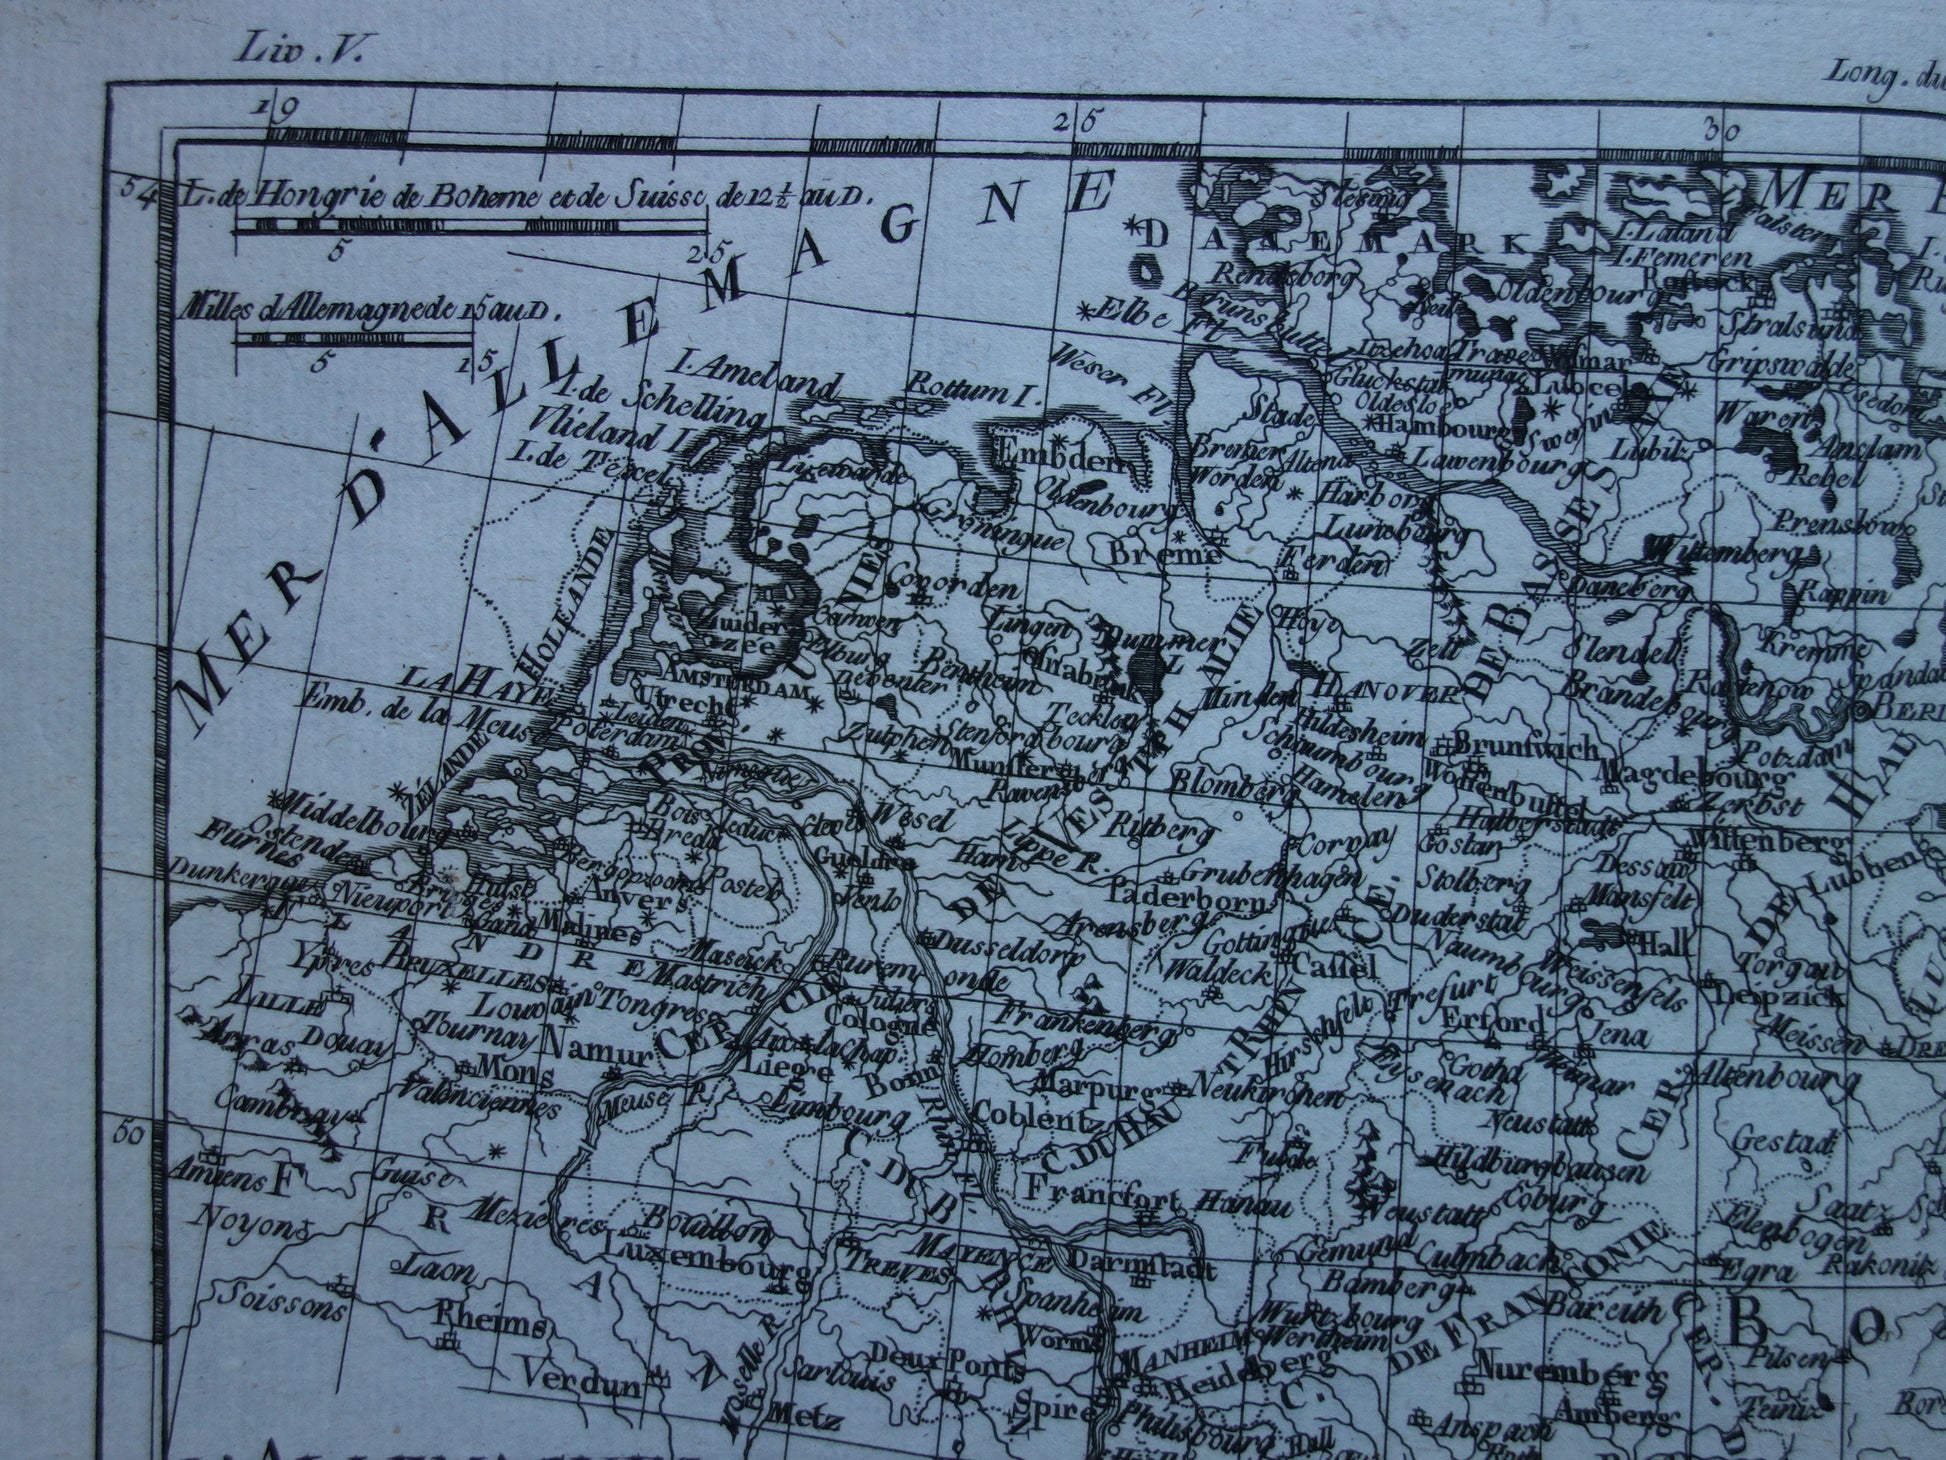 Liv. V.
Long. du
19
25
30
54
L. de Hongrie de Boheme et de Suisse de 12½ au D.
5
25
Milles d'Allemagne de 15 au D.
5
15
MER D'ALLEMAGNE
DANEMARK
MER
Sleswig
I. Laland
Falster
I. Femeren
Rostock
Rendsborg
Oldenbourg
Stralsund
Elbe Fl.
Brunsbuttel
Itzehoa
Travemunde
Wismar
Gripswalde
Gluckstat
Lubeck
Oldesloe
Hambourg
Swerin
Waren
Usedom
Anclam
Weser Fl.
Stade
Rottum I.
I. Ameland
I. de Schelling
Vlieland I.
I. de Texel
Embden
Bremer
Altena
Lawenbourg
Lubitz
Rebel
Worden
Harborg
Oldenbourg
Groningue
Luneborg
Prenslow
Wittemberg
Breme
Ferden
Daneberg
Rappin
HOLLANDE
Covorden
Zuider zee
Campen
Lingen
Dummer L
Hoye
Zell
Stendel
Kremme
Elburg
Bentheim
Osnabruk
AMSTERDAM
Deventer
Minden
HANOVER
Brandebourg
Ratenow
Spandau
LA HAYE
Utrecht
Leiden
Tecklenbourg
Hildesheim
BERL
Emb. de la Meuse
Roterdam
Zutphen
Stenford
Schaumbourg
Brunswich
Potzdam
PROV. UNIES
Munster
Magdebourg
ZELANDE
Nimegue
Ravensberg
Blomberg
Hamelen
Wolfenbuttel
Zerbst
Middelbourg
Bois leduc
Cleves
Wesel
Ritberg
Halberstadt
Wittenberg
Ostende
Breda
Lippe R.
Corvay
Goslar
Furnes
Gueldre
Ham
Dessau
Lubben
Dunkerque
Bergopzoom
Postel
Grubenhagen
Stolberg
Nieuport
Bruges
Hulst
Anvers
Venlo
Paderborn
Mansfelt
Gand
Malines
Arensberg
Duderstat
FLANDRE
Dusseldorp
Gottingue
Naumbourg
Hall
Ypres
BRUXELLES
Maseick
Ruremonde
Waldeck
Cassel
Weissenfels
Torgau
LILLE
Louvain
Tongres
Mastrich
Juliers
Trefurt
Leipzick
Arras
Douay
Tournay
Cologne
Frankenberg
Hirschfelt
Erford
Jena
Meissen
DRE
Namur
Aix la chap.
Homberg
Mons
Liege
Bonn
Marpurg
Neukirchen
Eysenach
Gotha
Weimar
Altenbourg
Cambray
Valenciennes
Meuse R.
Limbourg
Coblentz
Neustatt
50
CER. DE WESTPHALIE
CER. DE BASSE SAXE
CER. DE HAU
CER. CLE
Rhin Fl.
C. DU HAUT RHIN
C. DU BAS RHIN
Fulde
Hildburghausen
Gestadt
Amiens
Guise
Francfort
Hanau
Neustatt
Coburg
Saatz
FRAN
Noyon
Mezieres
Bouillon
Elenbogen
Luxembourg
MAYENCE
Darmstadt
Gemund
Culmbach
TREVES
Egra
Rakonitz
Laon
Bamberg
Soissons
Spanheim
Wurtzbourg
Bareuth
Rheims
Worms
Wertheim
C. DE FRANCONIE
BO
Verdun
Moselle R.
Sarlouis
Deux Ponts
MANHEIM
Heidelberg
Nuremberg
Pilsen
Metz
Spire
Philisbourg
Hall
Anspach
Amberg
Teiniz